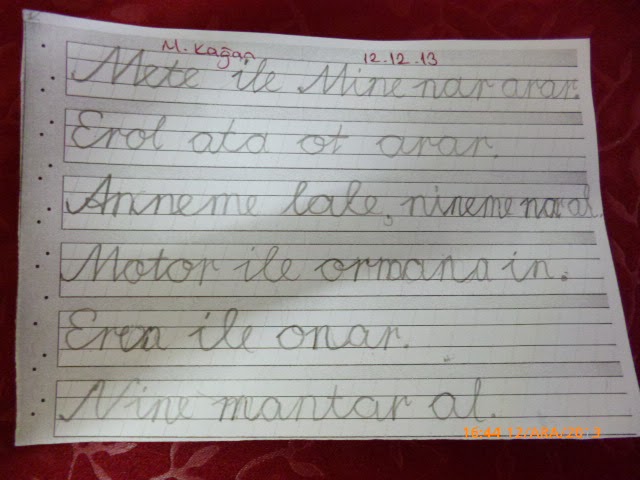 M. Kağan 12.12.13
Mete ile Mine nar arar.
Erol ata ot arar.
Anneme lale, nineme nar al.
Motor ile ormana in.
Eren ile onar.
Nine mantar al.